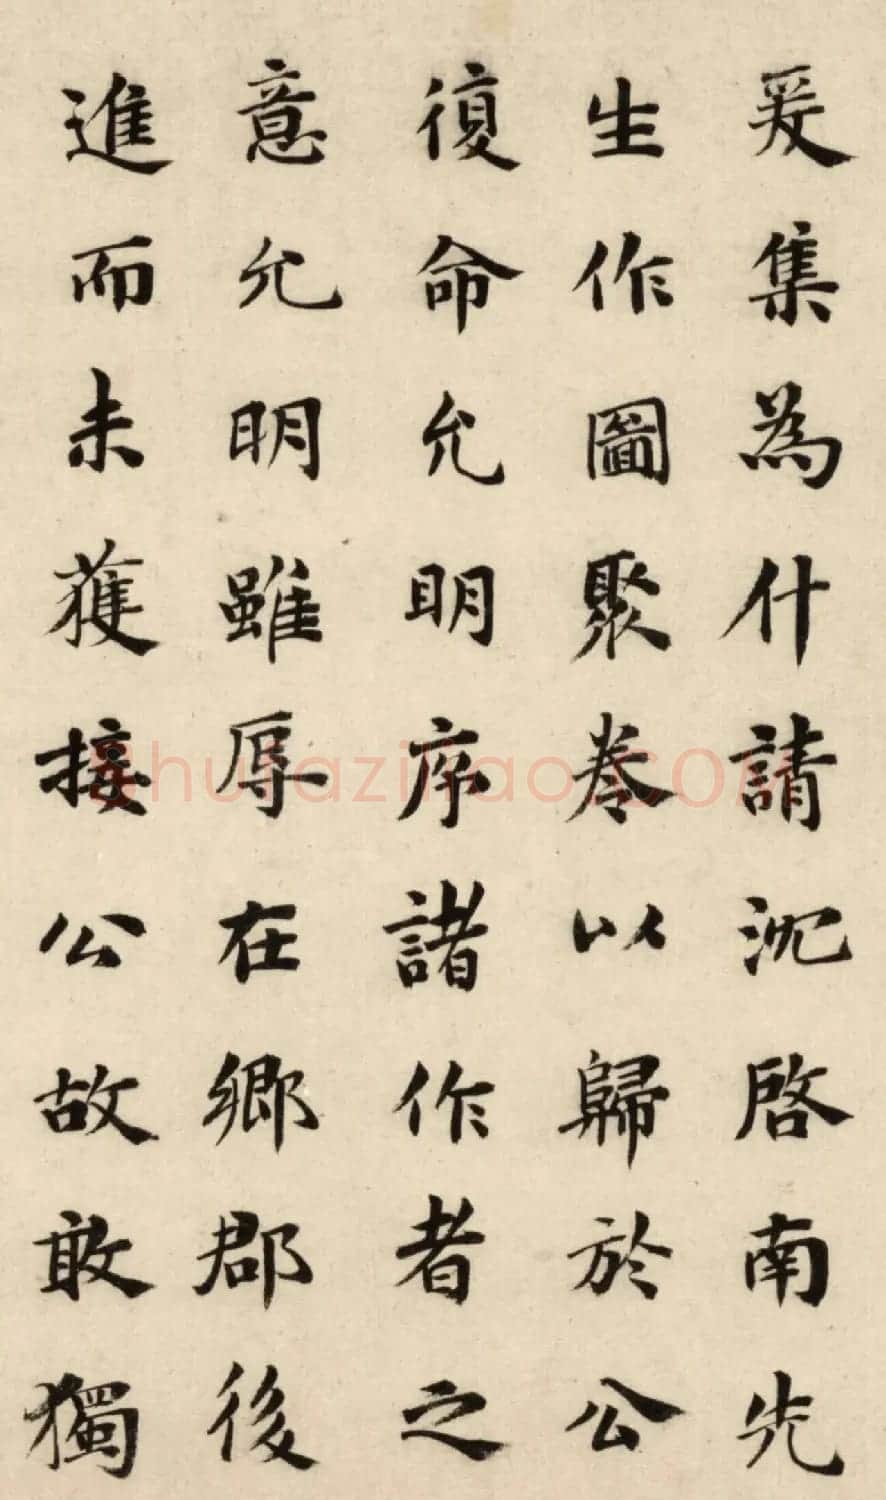 爰集為什請沈啓南先
生作圖聚卷以歸於公
復命允明序諸作者之
意允明雖辱在鄉郡後
進而未獲接公故敢獨
shufaziliao.COM